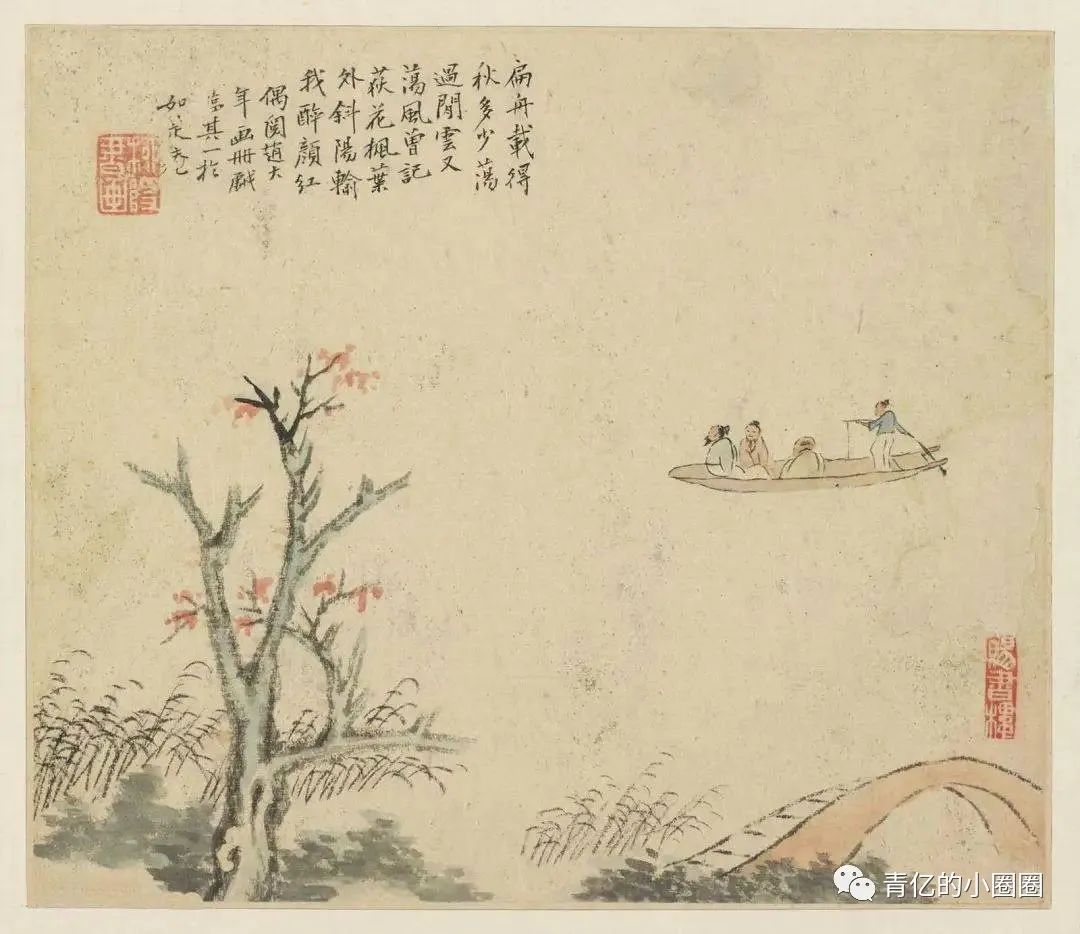 扁舟載得
秋多少蕩
過閒雲又
蕩風曾記
荻花楓葉
外斜陽輸
我醉顏紅
偶閱趙大
年畫冊戲
其一於
如是
賜書樓
青亿的小圈圈